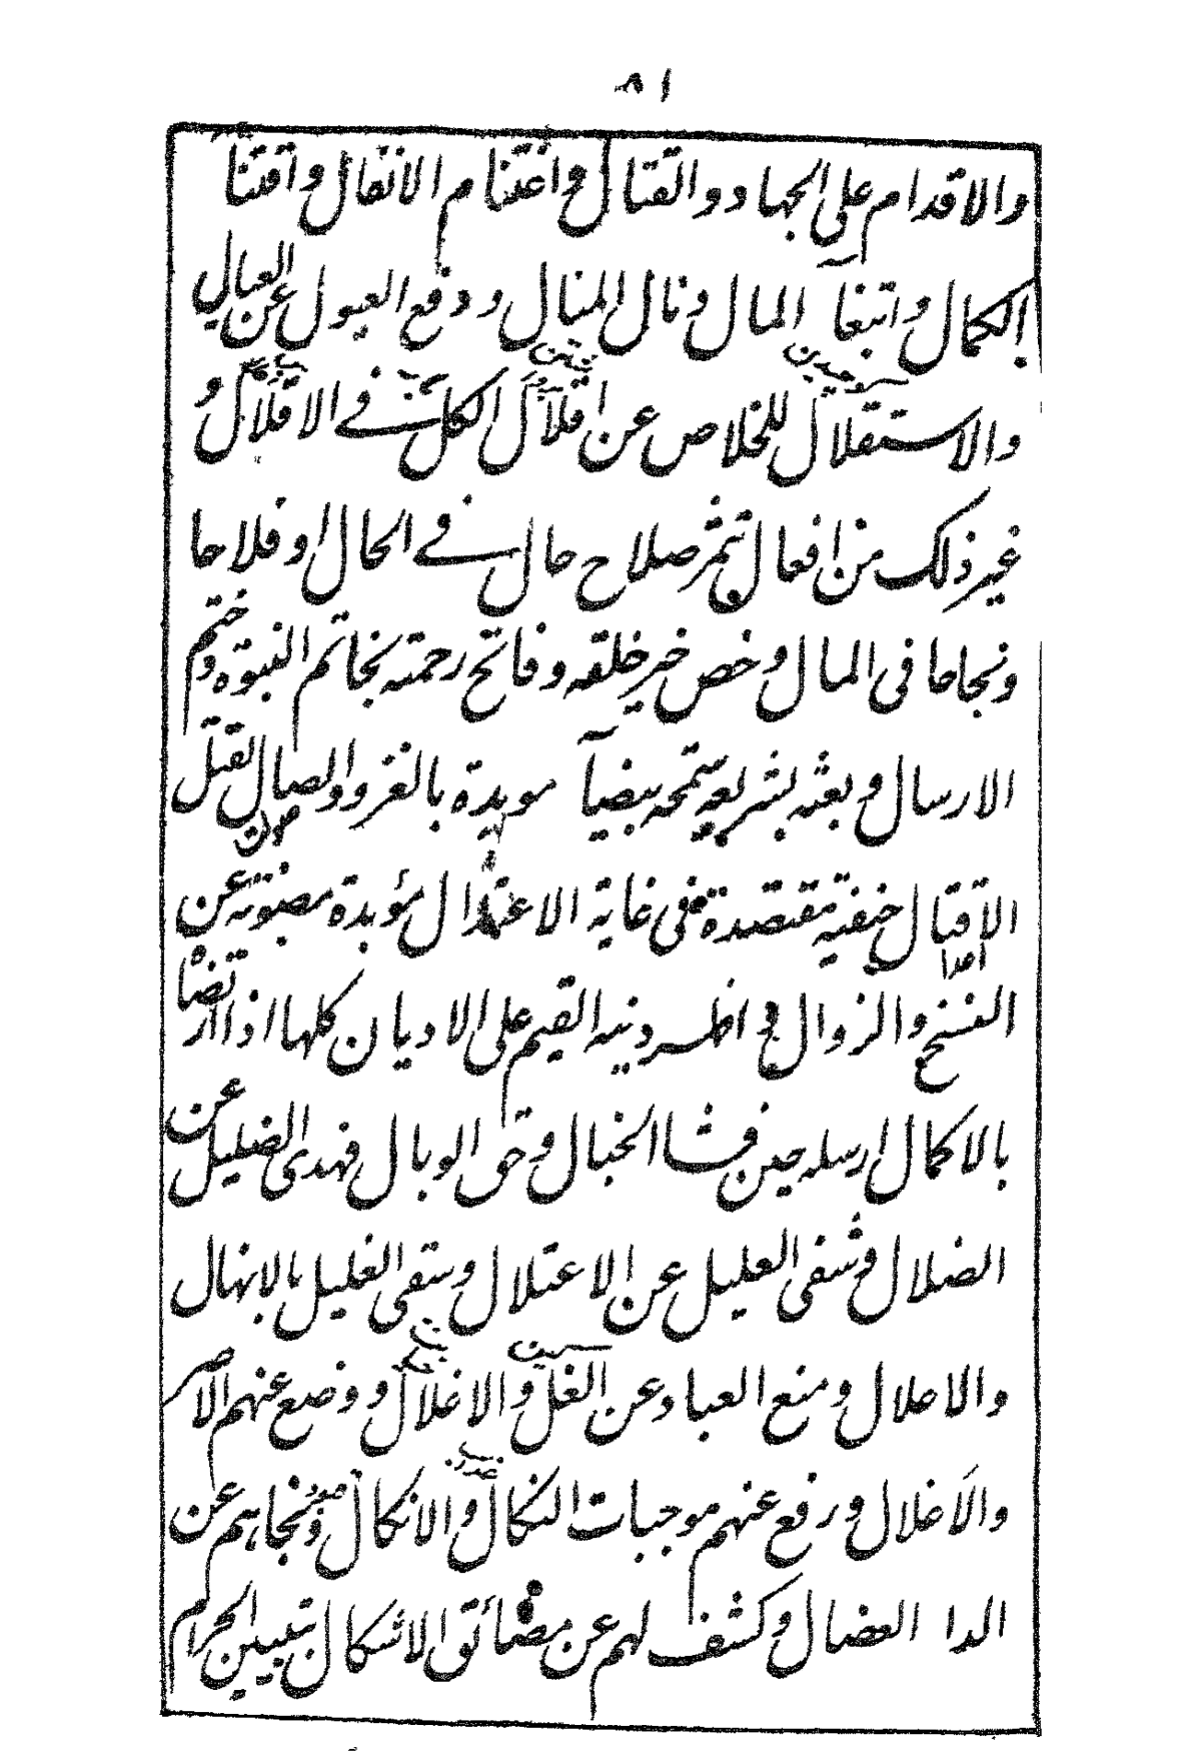 ٨١
والاقدام على الجهاد والقتال واغتنام الانفال واقتنا
الكمال وابتغآ المال ونال المنال ودفع العيول عن العيال
والاستقلال للخلاص عن اقلال الكل فى الاقلال و
غير ذلك من افعال تثمر صلاح حال فى الحال او فلاحا
ونجاحا فى المال وخص خير خلقه وفاتح رحمته بخاتم النبوة وختم
الارسال وبعثه بشريعة سمحة بيضآ مويدة بالغزو والصيال لقتل
الاقتال حنفية مقتصدة فى غاية الاعتدال مؤبدة مصونة عن
الفسخ والزوال واظهر دينه القيم على الاديان كلها اذا ارتضا
بالاكمال ارسله حين فشا الخبال وحق الوبال فهدى الضليل عن
الضلال وشفى العليل عن الاعتلال وسقى الغليل بالانهال
والاعلال ومنع العباد عن الغل والاغلال ووضع عنهم الاصر
والاغلال ورفع عنهم موجبات النكال والانكال ونجاهم عن
الدا العضال وكشف لهم عن مضائق الاشكال بتبيين الحرام